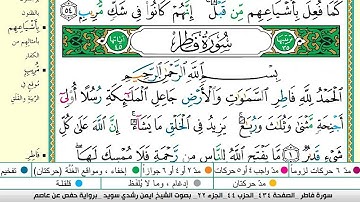 كَمَا فُعِلَ بِأَشْيَاعِهِم مِّن قَبْلُ ۚ إِنَّهُمْ كَانُوا۟ فِى شَكٍّ مُّرِيبٍۭ ٥٤
سُورَةُ فَاطِرٍ
بِسْمِ ٱللَّهِ ٱلرَّحْمَٰنِ ٱلرَّحِيمِ
ٱلْحَمْدُ لِلَّهِ فَاطِرِ ٱلسَّمَٰوَٰتِ وَٱلْأَرْضِ جَاعِلِ ٱلْمَلَٰٓئِكَةِ رُسُلًا أُو۟لِىٓ
أَجْنِحَةٍ مَّثْنَىٰ وَثُلَٰثَ وَرُبَٰعَ ۚ يَزِيدُ فِى ٱلْخَلْقِ مَا يَشَآءُ ۚ إِنَّ ٱللَّهَ عَلَىٰ كُلِّ
شَىْءٍ قَدِيرٌ ١ مَّا يَفْتَحِ ٱللَّهُ لِلنَّاسِ مِن رَّحْمَةٍ فَلَا مُمْسِكَ لَهَا ۖ
بِأَشْيَاعِهِم
بأمثالهم من
الكفار
مُّرِيبٍ
فَاطِرِ
مدّ ٦ حركات لزوماً مدّ ٢ أو ٤ أو ٦ جوازاً إخفاء، ومواقع الغُنَّة (حركتان) تفخيم
مدّ حركتان إدغام، وما لا يُلفَظ قلقلة
سورة فاطر . الصفحة ٤٣٤ الحزب ٤٤ . الجزء ٢٢ . بصوت الشيخ ايمن رشدي سويد . برواية حفص عن عاصم